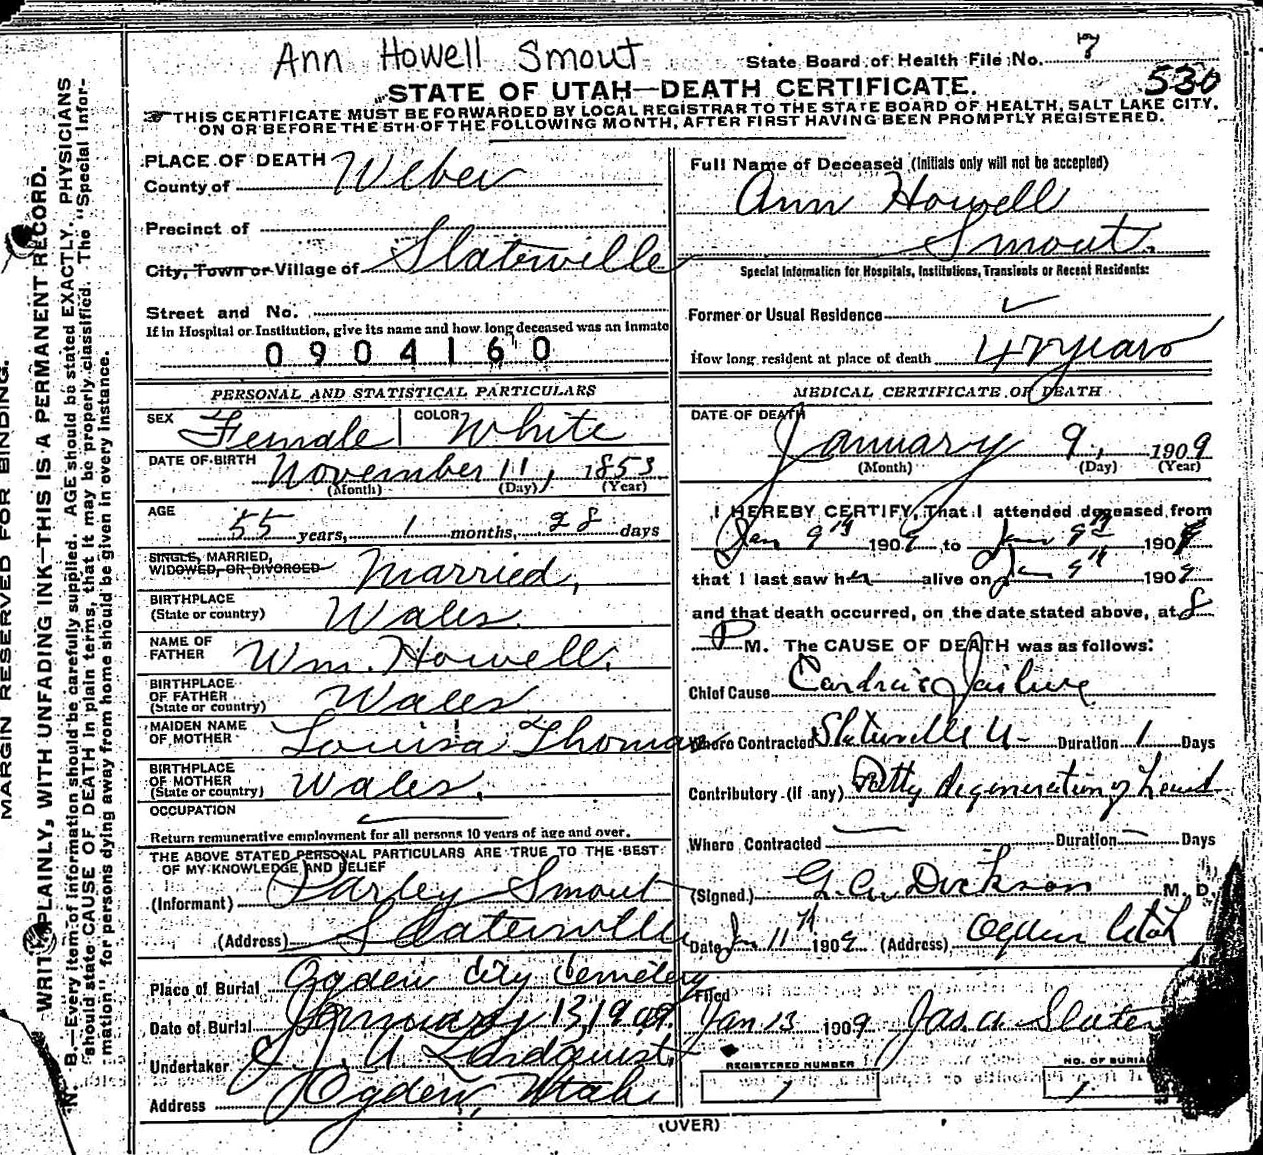 Ann Howell Smout
State Board of Health File No. 7
530
STATE OF UTAH—DEATH CERTIFICATE.
THIS CERTIFICATE MUST BE FORWARDED BY LOCAL REGISTRAR TO THE STATE BOARD OF HEALTH, SALT LAKE CITY,
ON OR BEFORE THE 5TH OF THE FOLLOWING MONTH, AFTER FIRST HAVING BEEN PROMPTLY REGISTERED.
PLACE OF DEATH
County of Weber
Precinct of
City, Town or Village of Slaterville
Street and No.
If in Hospital or Institution, give its name and how long deceased was an inmate
0904160
PERSONAL AND STATISTICAL PARTICULARS
SEX Female COLOR White
DATE OF BIRTH November 11, 1853
(Month) (Day) (Year)
AGE
55 years, 1 months, 28 days
SINGLE, MARRIED,
WIDOWED, OR DIVORCED Married,
BIRTHPLACE
(State or country) Wales.
NAME OF
FATHER Wm. Howell.
BIRTHPLACE
OF FATHER
(State or country) Wales
MAIDEN NAME
OF MOTHER Louisa Thomas
BIRTHPLACE
OF MOTHER
(State or country) Wales.
OCCUPATION
Return remunerative employment for all persons 10 years of age and over.
THE ABOVE STATED PERSONAL PARTICULARS ARE TRUE TO THE BEST
OF MY KNOWLEDGE AND BELIEF
(Informant) Parley Smout
(Address) Slaterville
Place of Burial Ogden City Cemetery
Date of Burial January 13, 1909.
Undertaker J. A Lindquist
Address Ogden, Utah
Full Name of Deceased (Initials only will not be accepted)
Ann Howell
Smout.
Special Information for Hospitals, Institutions, Transients or Recent Residents:
Former or Usual Residence
How long resident at place of death 47 years
MEDICAL CERTIFICATE OF DEATH
DATE OF DEATH
January 9, 1909
(Month) (Day) (Year)
I HEREBY CERTIFY, That I attended deceased from
Jan 9th 1909 to Jan 9th 1909
that I last saw her alive on Jan 9th 1909
and that death occurred, on the date stated above, at 8
P M. The CAUSE OF DEATH was as follows:
Chief Cause Cardiac Failure
Where Contracted Slaterville U- Duration 1 Days
Contributory (if any) Fatty degeneration of heart
Where Contracted Duration Days
(Signed.) G. W. Dickson M. D.
Date Jan 11th 1909 (Address) Ogden Utah
Filed
Jan 13 1909 Jas. A. Slater
REGISTERED NUMBER
1
NO. OF BURIAL
1
(OVER)
MARGIN RESERVED FOR BINDING.
WRITE PLAINLY, WITH UNFADING INK—THIS IS A PERMANENT RECORD.
N. B.—Every item of information should be carefully supplied. AGE should be stated EXACTLY. PHYSICIANS
should state CAUSE OF DEATH in plain terms, that it may be properly classified. The "Special Infor-
mation" for persons dying away from home should be given in every instance.